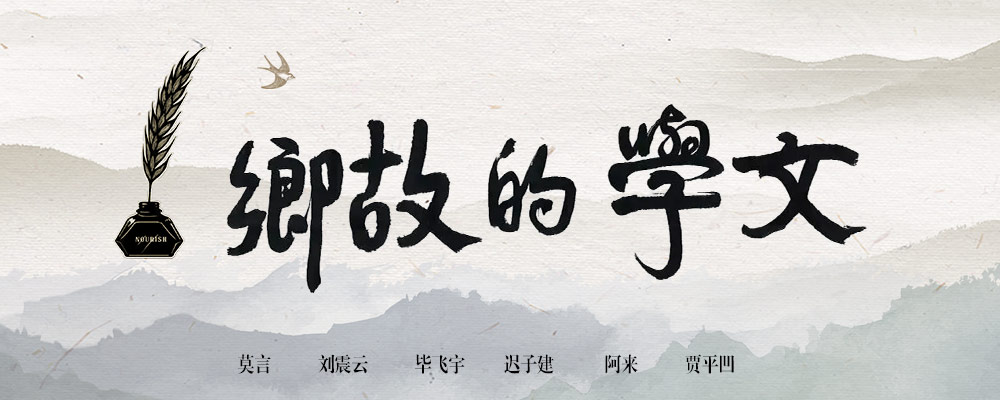 文學的故鄉
NOURISH
莫言 刘震云 毕飞宇 迟子建 阿来 贾平凹